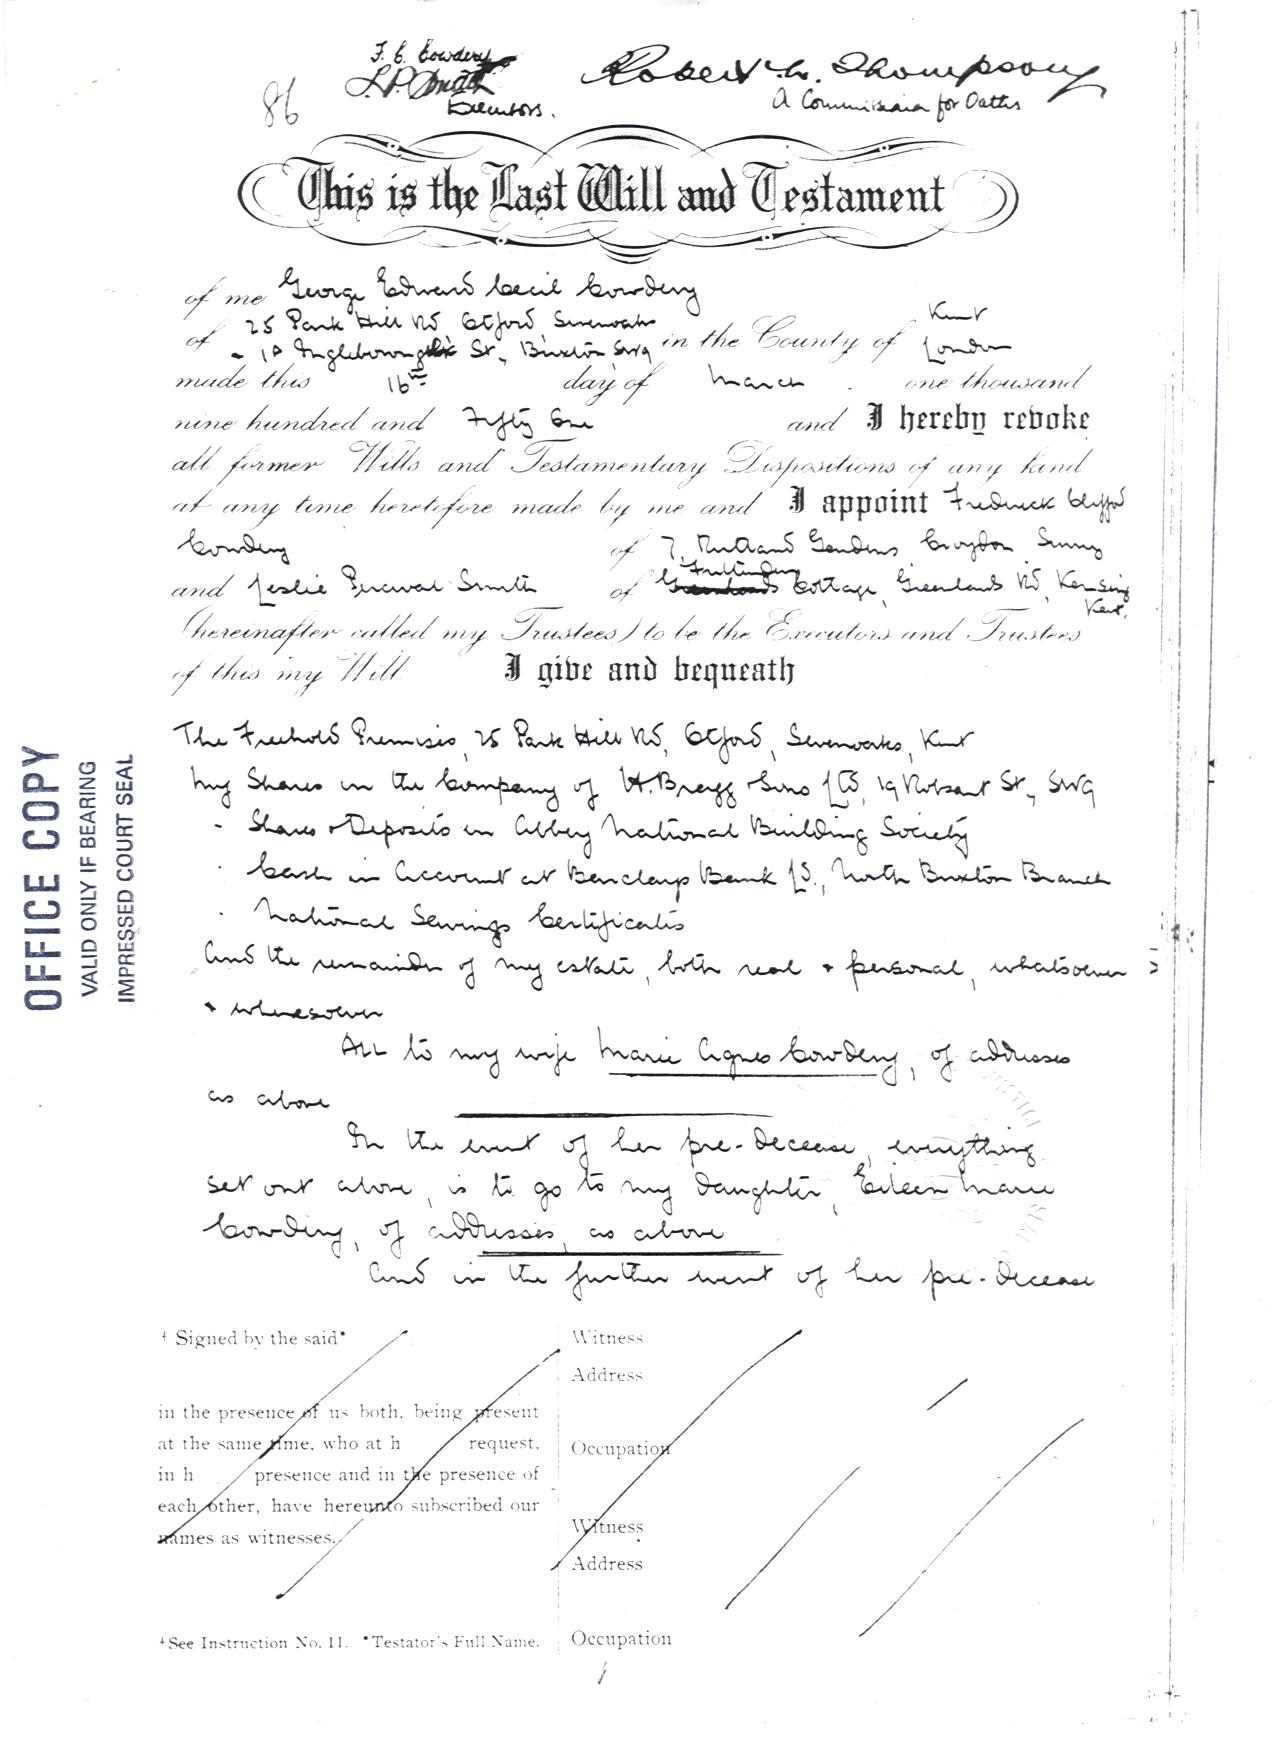 F. C. Cowdery
L. P. Smith
Executors.
Robert W. Thompson
A Commissioner for Oaths
86
This is the Last Will and Testament
of me George Edward Cecil Cowdery
of 25 Park Hill Rd, Otford, Sevenoaks
+ 1A Ingleborough St., Brixton SW9 in the County of Kent London
made this 16th day of March. one thousand
nine hundred and Fifty One and I hereby revoke
all former Wills and Testamentary Dispositions of any kind
at any time heretofore made by me and I appoint Fredrick Clifford
Cowdery of 7, Rutland Gardens Croydon Surrey
and Leslie Percival Smith of Cottage, Greenlands Rd, Kemsing
Kent.
(hereinafter called my Trustees) to be the Executors and Trustees
of this my Will. I give and bequeath
The Freehold Premises, 25 Park Hill Rd, Otford, Sevenoaks, Kent
My Shares in the Company of H. Bragg + Sons Ltd, 19 Robsart St., SW9
" Shares + Deposits in Abbey National Building Society
" Cash in Account at Barclays Bank Ld., North Brixton Branch
" National Savings Certificates
And the remainder of my estate, both real + personal, whatsoever
+ wheresoever
All to my wife Marie Agnes Cowdery, of addresses
as above
In the event of her pre-decease, everything
set out above, is to go to my daughter, Eileen Marie
Cowdery, of addresses, as above
And in the further event of her pre-decease
† Signed by the said*
in the presence of us both, being present
at the same time, who at h request,
in h presence and in the presence of
each other, have hereunto subscribed our
names as witnesses.
†See Instruction No. 11. *Testator's Full Name.
Witness
Address
Occupation
Witness
Address
Occupation
1
OFFICE COPY
VALID ONLY IF BEARING
IMPRESSED COURT SEAL